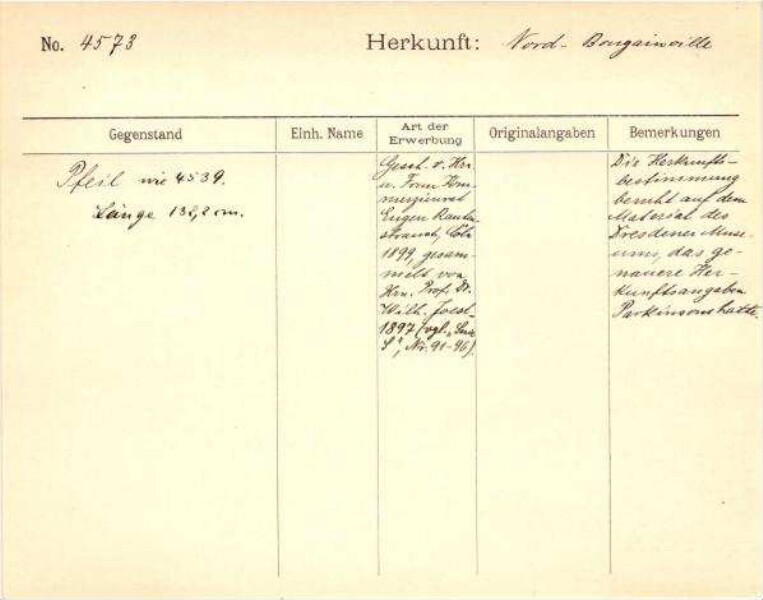 No. 4573 Herkunft: Nord-Bougainville
Gegenstand Einh. Name Art der Erwerbung Originalangaben Bemerkungen
Pfeil wie 4539.
Länge 138,2 cm.
Gesch. v. Hrn
u. Frau Kom-
merzienrat
Eugen Rauten-
strauch, Cöln
1899, gesam-
melt von
Hrn. Prof. Dr.
Wilh. Joest
1897 (vgl.
S", Nr. 91-96).
Die Herkunfts-
bestimmung
beruht auf dem
Material des
Dresdener Muse-
ums, das ge-
nauere Her-
kunftsangaben
Parkinsons hatte.